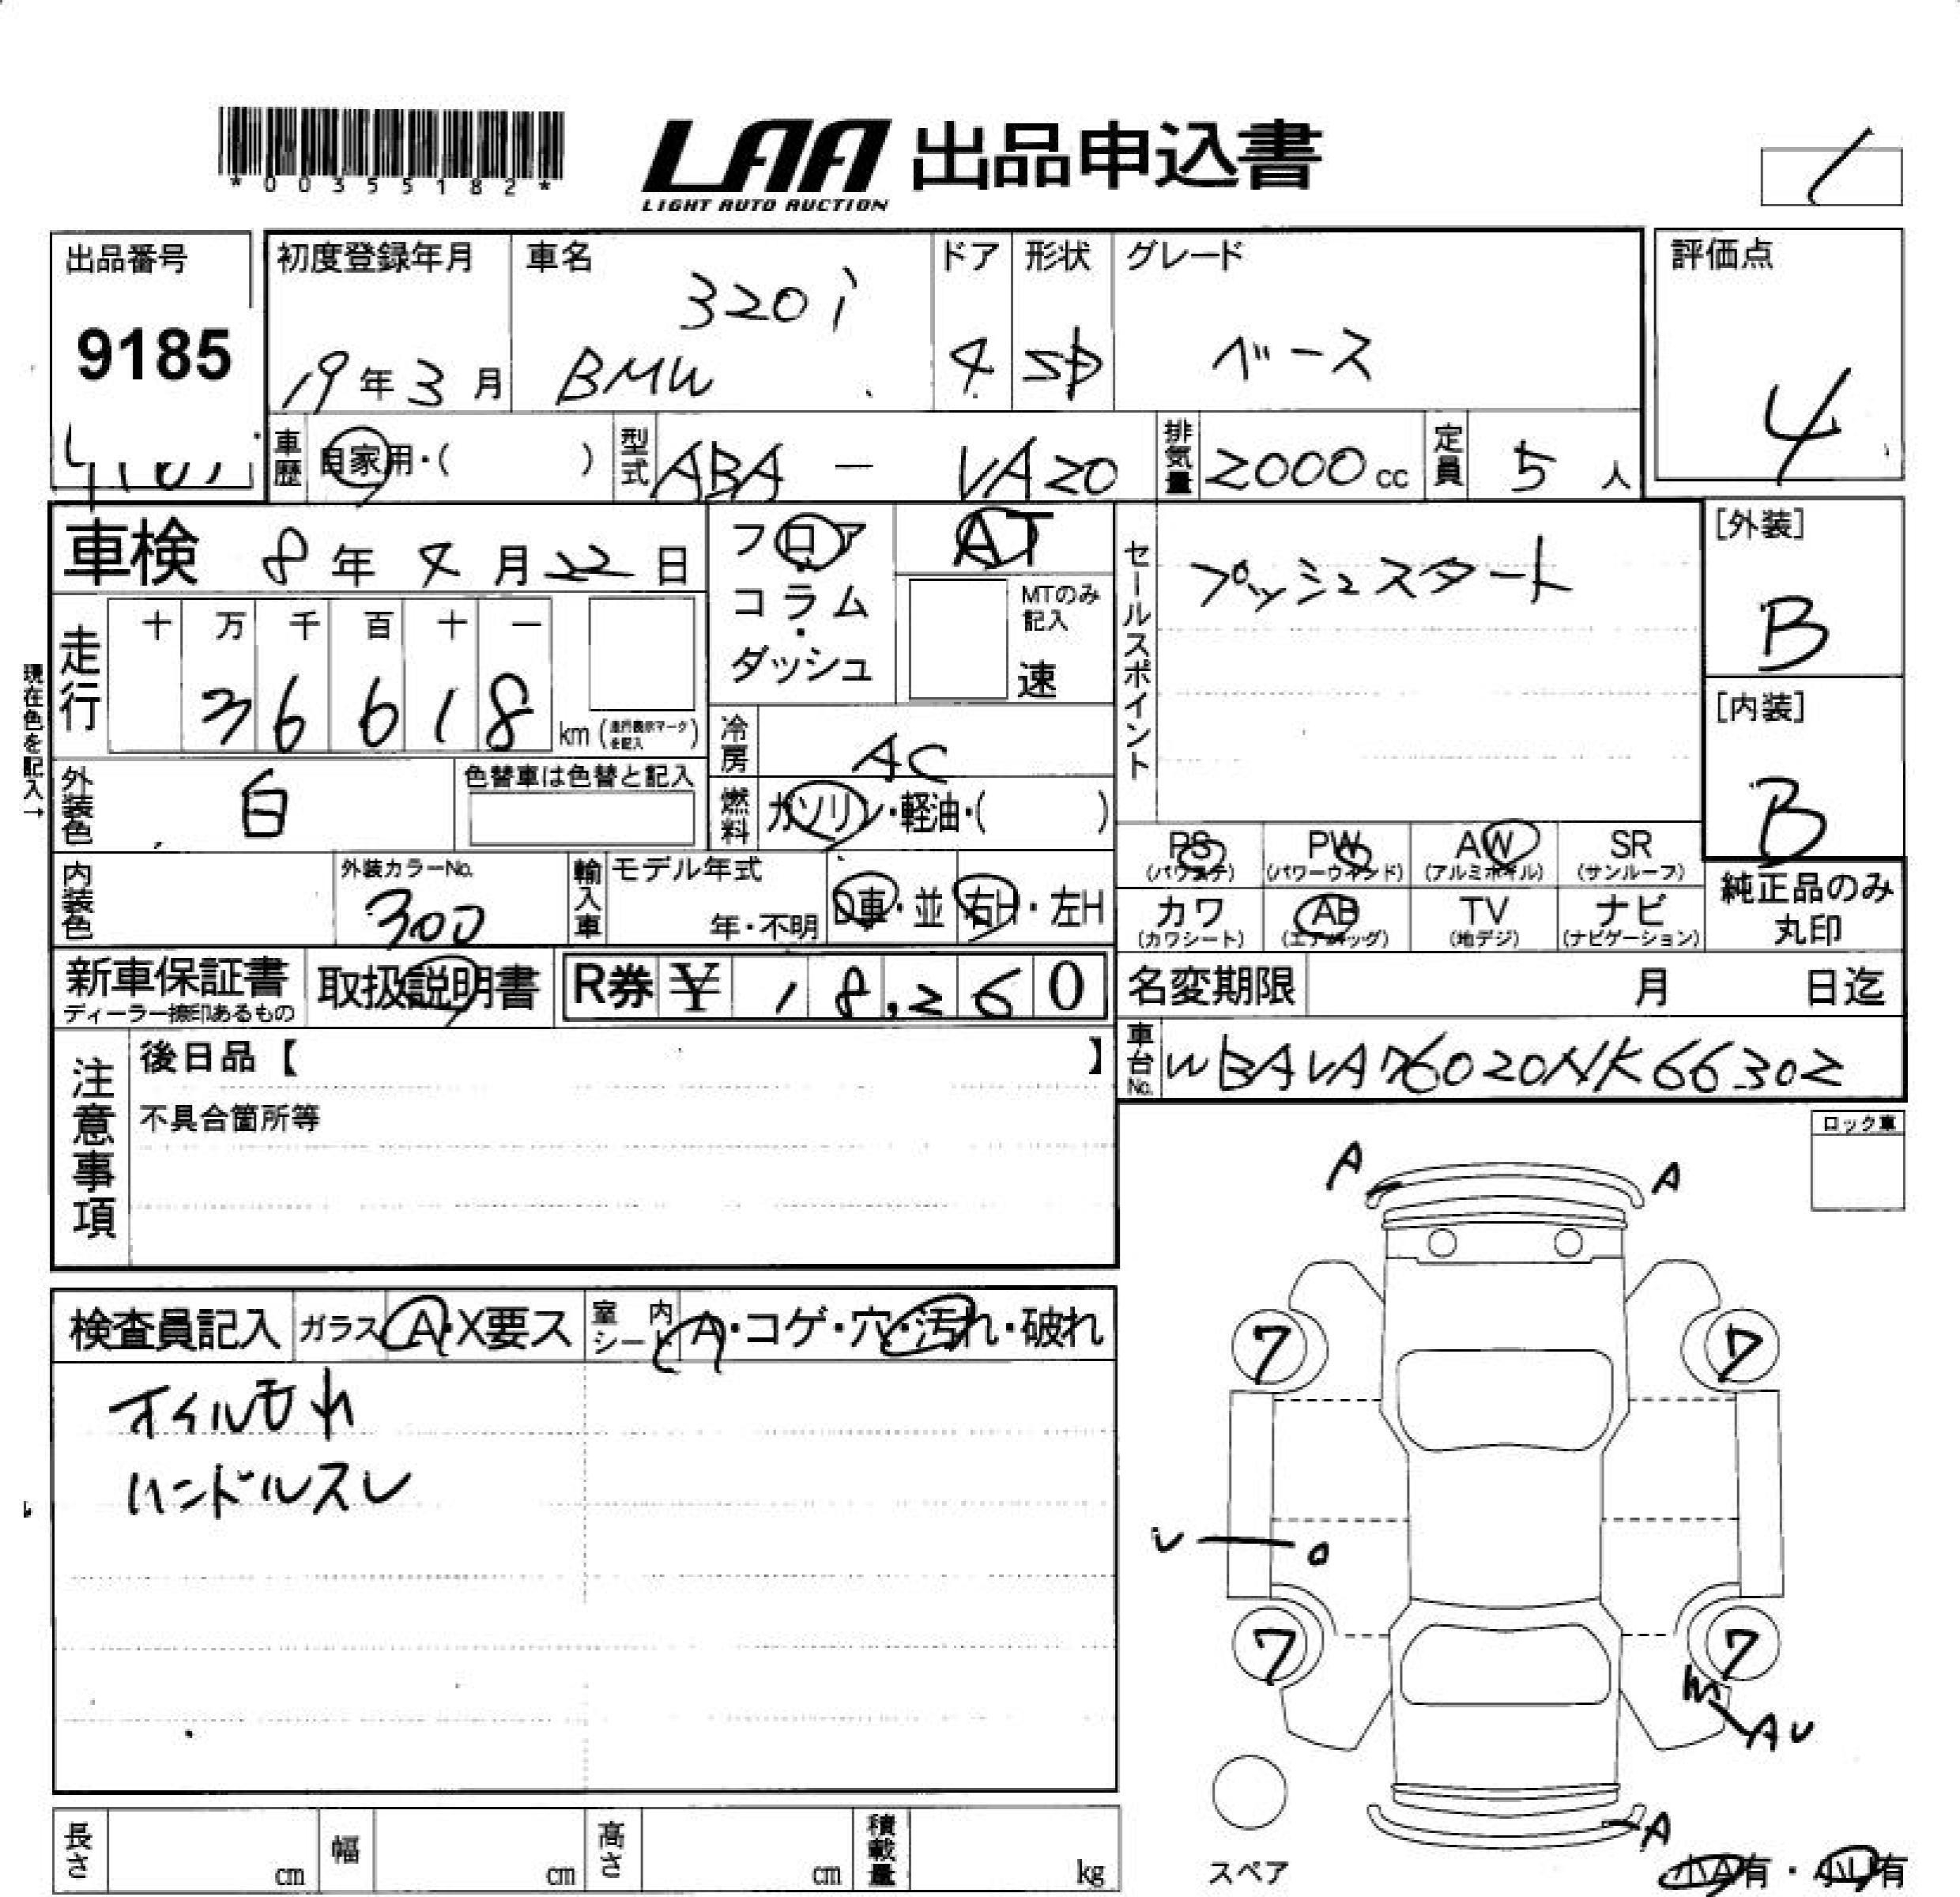 *00355182*
LAA 出品申込書
LIGHT AUTO AUCTION
出品番号
9185
初度登録年月
19年3月
車名
320i
BMW
ドア
4
形状
SD
グレード
ベース
評価点
4
車歴 自家用・( )
型式 ABA - VA20
排気量 2000cc
定員 5人
車検 8年4月22日
フロア
・
コラム
・
ダッシュ
AT
MTのみ記入
速
セールスポイント
プッシュスタート
[外装]
B
[内装]
B
現在色を記入→
走行
十 万 千 百 十 一
3 6 6 1 8 km (走行表示マークを記入)
冷房 AC
燃料 ガソリン・軽油・( )
外装色 白
色替車は色替と記入
内装色
外装カラーNo.
300
輸入車
モデル年式
年・不明
D車・並
右H・左H
PS (パワステ)
PW (パワーウインド)
AW (アルミホイル)
SR (サンルーフ)
カワ (カワシート)
AB (エアバッグ)
TV (地デジ)
ナビ (ナビゲーション)
純正品のみ
丸印
新車保証書
ディーラー捺印あるもの
取扱説明書
R券 ¥ 18,260
名変期限 月 日迄
車台No.
注意事項
後日品【 】
不具合箇所等
ロック車
検査員記入
ガラス A・X要ス
室内シート A・コゲ・穴・汚れ・破れ
オイルモれ
ハンドルスレ
A A
7 7
U
7 7
AU
A
スペア
小A有・小U有
長さ cm
幅 cm
高さ cm
積載量 kg